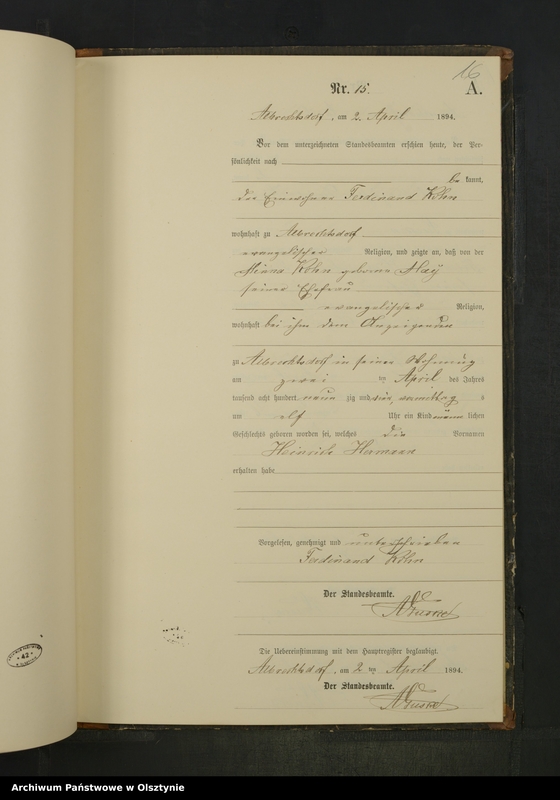 16
Nr. 15.
A.
Albrechtsdorf, am 2. April 1894.
Vor dem unterzeichneten Standesbeamten erschien heute, der Per-
sönlichkeit nach
be kannt,
der Einwohner Ferdinand Kohn
wohnhaft zu Albrechtsdorf
evangelischer Religion, und zeigte an, daß von der
Minna Kohn geborne
seiner Ehefrau
evangelischer Religion,
wohnhaft bei ihm dem Anzeigenden
zu Albrechtsdorf in seiner Wohnung
am zwei ten April des Jahres
tausend acht hundert neun zig und vier, vormittag s
um elf Uhr ein Kind männ lichen
Geschlechts geboren worden sei, welches die Vornamen
Heinrich Hermann
erhalten habe
Vorgelesen, genehmigt und unterschrieben
Ferdinand Kohn
Der Standesbeamte.
Die Uebereinstimmung mit dem Hauptregister beglaubigt.
Albrechtsdorf, am 2 ten April 1894.
Der Standesbeamte.
42
Archiwum Państwowe w Olsztynie